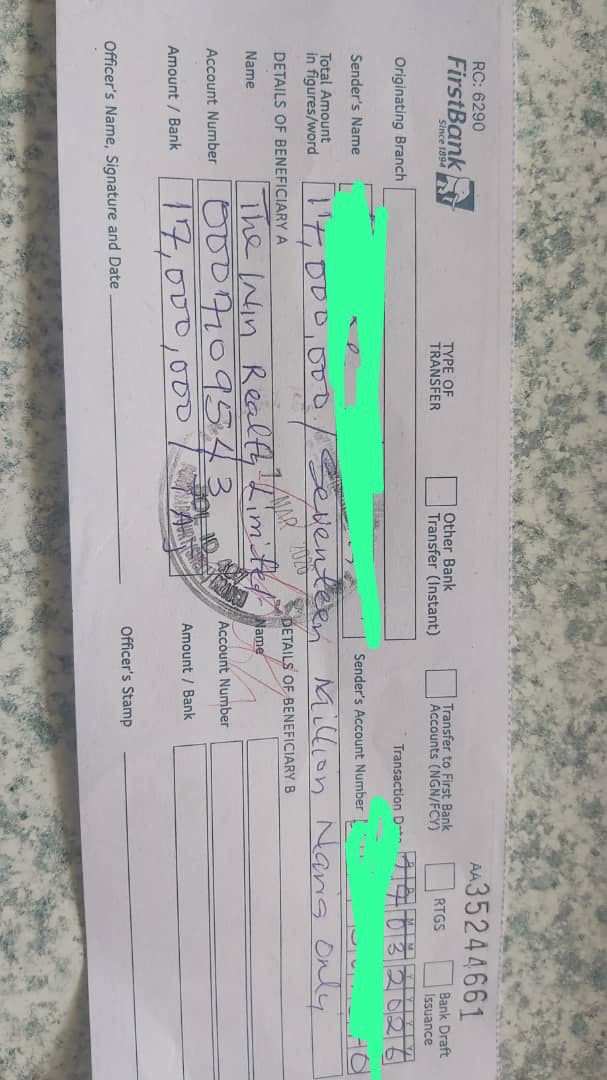 RC: 6290
AA35244661
FirstBank
Since 1894
TYPE OF TRANSFER
Other Bank Transfer (Instant)
Transfer to First Bank Accounts (NGN/FCY)
RTGS
Bank Draft Issuance
Originating Branch
Transaction
D D M M Y Y Y Y
Sender's Name
Sender's Account Number
Total Amount
in figures/word
17,000,000 / Seventeen Million Naira Only
DETAILS OF BENEFICIARY A
DETAILS OF BENEFICIARY B
Name The Win Realty Limited
Name
Account Number 0007109543
Account Number
Amount / Bank 17,000,000 /
Amount / Bank
MAR
Officer's Name, Signature and Date
Officer's Stamp